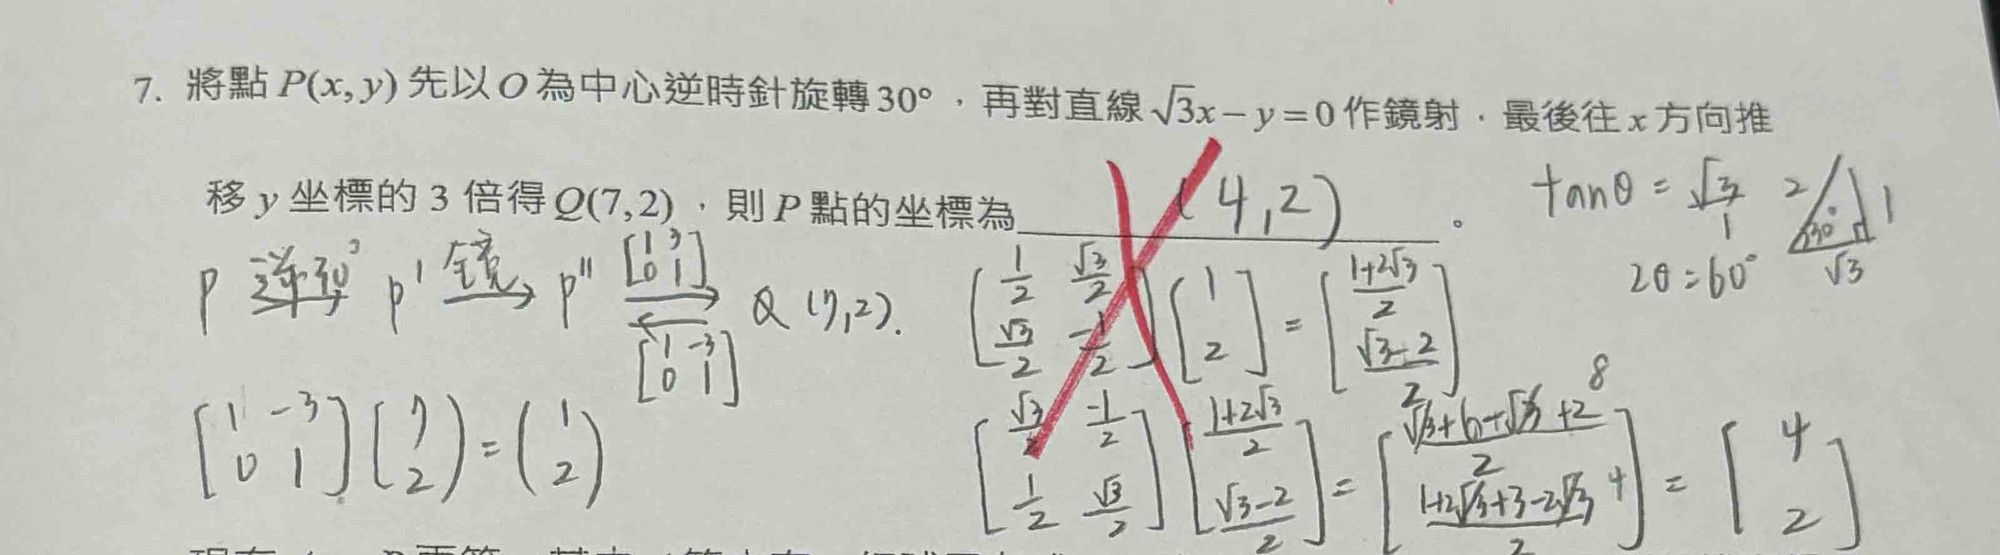 7. 將點 P(x, y) 先以 O 為中心逆時針旋轉 30°，再對直線 √3x − y = 0 作鏡射，最後往 x 方向推
移 y 坐標的 3 倍得 Q(7, 2)，則 P 點的坐標為 (4,2) 。
tanθ = √3/1 2 30° 1 √3
2θ = 60°
P 逆30° → P' 鏡 → P'' [1 3; 0 1] → Q (7,2).
← [1 -3; 0 1]
[1/2 √3/2; √3/2 -1/2] [1; 2] = [(1+2√3)/2; (√3-2)/2]
[1 -3; 0 1] (7; 2) = (1; 2)
[√3/2 -1/2; 1/2 √3/2] [(1+2√3)/2; (√3-2)/2] = [(√3+6-√3+2)/2; (1+2√3+3-2√3)/2] = [4; 2]
8
4